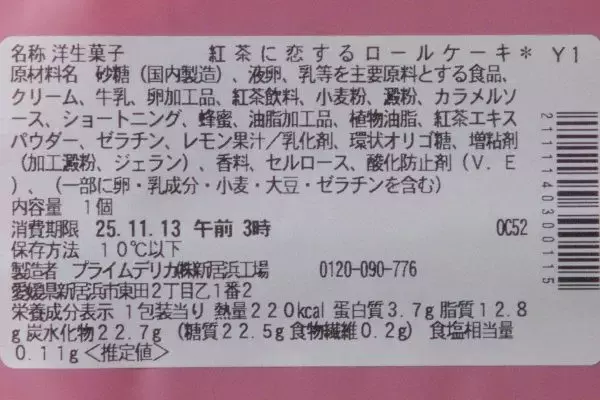 名称 洋生菓子 紅茶に恋するロールケーキ* Y1
原材料名 砂糖(国内製造)、液卵、乳等を主要原料とする食品、
クリーム、牛乳、卵加工品、紅茶飲料、小麦粉、澱粉、カラメルソ
ース、ショートニング、蜂蜜、油脂加工品、植物油脂、紅茶エキス
パウダー、ゼラチン、レモン果汁/乳化剤、環状オリゴ糖、増粘剤
(加工澱粉、ジェラン)、香料、セルロース、酸化防止剤(V.E
)、(一部に卵・乳成分・小麦・大豆・ゼラチンを含む)
内容量 1個
消費期限 25.11.13 午前 3時 0C52
保存方法 10℃以下
製造者 プライムデリカ㈱新居浜工場 0120-090-776
愛媛県新居浜市東田2丁目乙1番2
栄養成分表示 1包装当り 熱量220kcal 蛋白質3.7g 脂質12.8
g 炭水化物22.7g (糖質22.5g 食物繊維0.2g) 食塩相当量
0.11g<推定値>
2111140300115